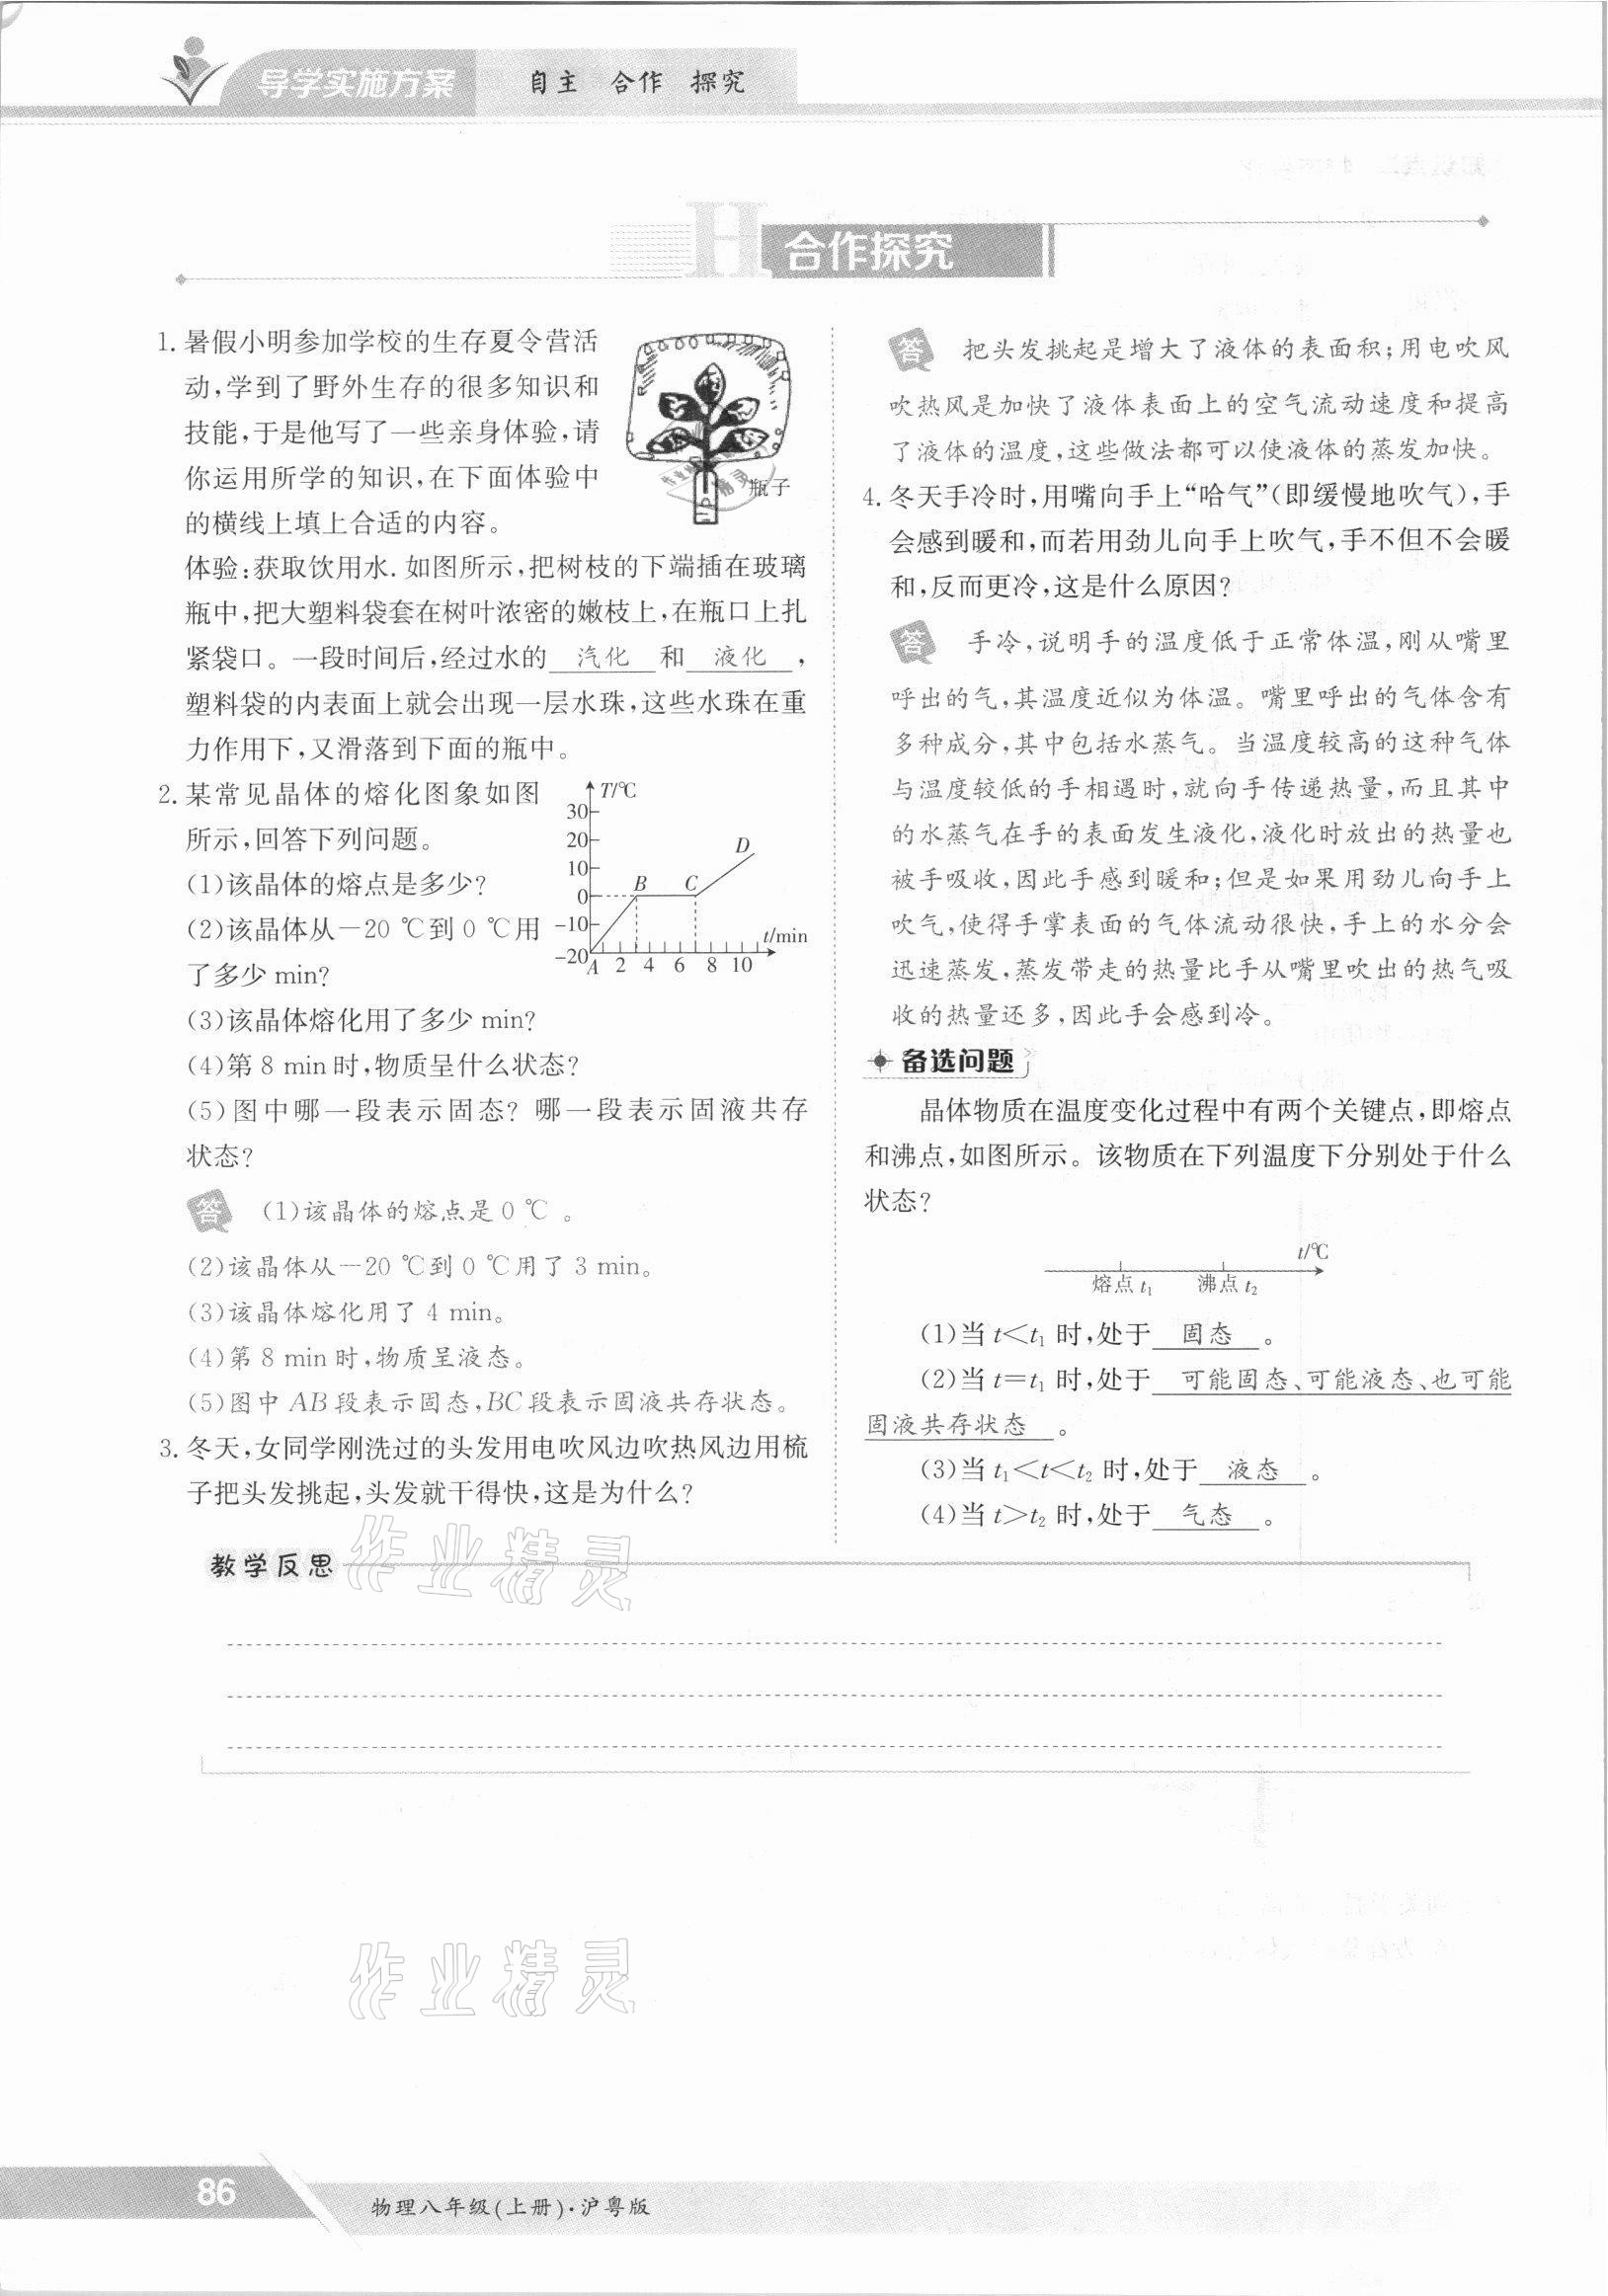 导学实施方案
自主 合作 探究
H 合作探究
1. 暑假小明参加学校的生存夏令营活
动,学到了野外生存的很多知识和
技能,于是他写了一些亲身体验,请
你运用所学的知识,在下面体验中
的横线上填上合适的内容。
瓶子
体验:获取饮用水. 如图所示,把树枝的下端插在玻璃
瓶中,把大塑料袋套在树叶浓密的嫩枝上,在瓶口上扎
紧袋口。一段时间后,经过水的 汽化 和 液化 ,
塑料袋的内表面上就会出现一层水珠,这些水珠在重
力作用下,又滑落到下面的瓶中。
2. 某常见晶体的熔化图象如图
所示,回答下列问题。
(1)该晶体的熔点是多少?
(2)该晶体从-20 ℃到0 ℃用
了多少 min?
T/℃
30
20
10
0
-10
-20
A
B
C
D
2 4 6 8 10
t/min
(3)该晶体熔化用了多少 min?
(4)第 8 min 时,物质呈什么状态?
(5)图中哪一段表示固态? 哪一段表示固液共存
状态?
答 (1)该晶体的熔点是0 ℃ 。
(2)该晶体从-20 ℃到 0 ℃用了 3 min。
(3)该晶体熔化用了 4 min。
(4)第 8 min 时,物质呈液态。
(5)图中 AB 段表示固态,BC 段表示固液共存状态。
3. 冬天,女同学刚洗过的头发用电吹风边吹热风边用梳
子把头发挑起,头发就干得快,这是为什么?
答 把头发挑起是增大了液体的表面积;用电吹风
吹热风是加快了液体表面上的空气流动速度和提高
了液体的温度,这些做法都可以使液体的蒸发加快。
4. 冬天手冷时,用嘴向手上“哈气”(即缓慢地吹气),手
会感到暖和,而若用劲儿向手上吹气,手不但不会暖
和,反而更冷,这是什么原因?
答 手冷,说明手的温度低于正常体温,刚从嘴里
呼出的气,其温度近似为体温。嘴里呼出的气体含有
多种成分,其中包括水蒸气。当温度较高的这种气体
与温度较低的手相遇时,就向手传递热量,而且其中
的水蒸气在手的表面发生液化,液化时放出的热量也
被手吸收,因此手感到暖和;但是如果用劲儿向手上
吹气,使得手掌表面的气体流动很快,手上的水分会
迅速蒸发,蒸发带走的热量比手从嘴里吹出的热气吸
收的热量还多,因此手会感到冷。
备选问题
晶体物质在温度变化过程中有两个关键点,即熔点
和沸点,如图所示。该物质在下列温度下分别处于什么
状态?
t/℃
熔点 t₁ 沸点 t₂
(1)当 t<t₁ 时,处于 固态 。
(2)当 t=t₁ 时,处于 可能固态、可能液态、也可能
固液共存状态 。
(3)当 t₁<t<t₂ 时,处于 液态 。
(4)当 t>t₂ 时,处于 气态 。
教学反思
作业精灵
作业精灵
86
物理八年级(上册)·沪粤版